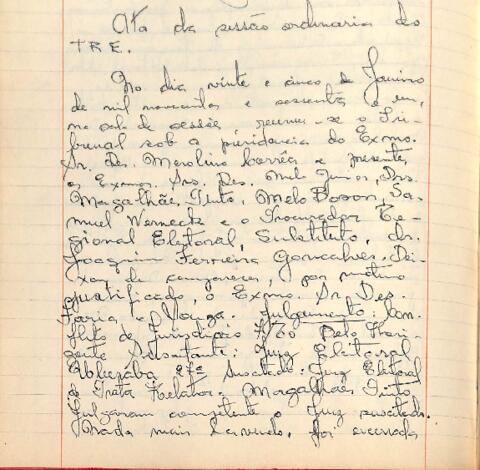 Ata da sessão ordinaria do
T.R.E.
No dia vinte e cinco de Janeiro
de mil novecentos e sessenta e um,
na sala de sessões, reuniu-se o Tri-
bunal sob a presidencia do Exmo.
Sr. Des. Merolino Corrêa e presentes
os Exmos. Srs. Des. Mello Junior, Drs.
Magalhães Pinto, Melo Boson, Sa-
muel Werneck e o Procurador Re-
gional Eleitoral, Substituto, dr.
Joaquim Ferreira Gonçalves. Dei-
xou de comparecer, por motivo
justificado, o Exmo. Sr. Des.
Faria e Souza. Julgamento: Con-
flito de jurisdição Belo Hori-
zonte Suscitante: Juiz Eleitoral
Suscitado: Juiz Eleitoral
do Prata Relator: Magalhães Pinto
Julgaram competente o Juiz suscitado.
Nada mais havendo, foi encerrada